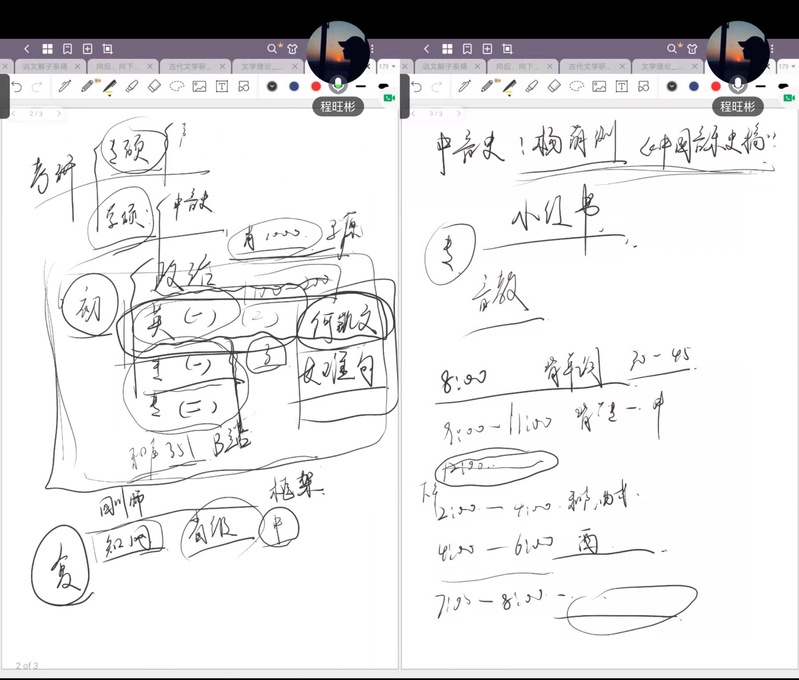 说文解字系缚 向后，向下... 古代文学研... 文学理论... 173
程旺彬
2/3
考研
专硕
学硕 中音史
背1000
初
政治
英(一) (二) 何凯文
专(一) 3
专(二)
和声351 B站
框架
复
知网 省级 中
2 of 3
说文解字系缚 向后，向下... 古代文学研... 文学理论... 173
程旺彬
3/3
中音史：杨荫浏《中国音乐史稿》
小红书
专
音教
8:00 背单词 30-45
9:00-11:00 背专一 中
12:00
下午
2:00-4:00 和声，曲式
4:00-6:00 西
7:00-8:00-